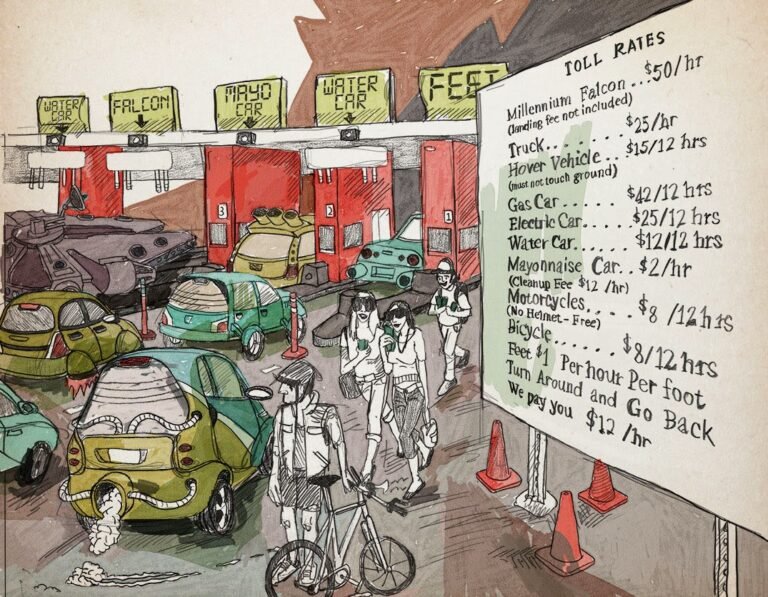 WATER
CAR
FALCON
MAYO
CAR
WATER
CAR
FEET
3
2
1
TOLL RATES
Millennium Falcon ... $50/hr
(landing fee not included)
Truck....... $25/hr
Hover Vehicle ... $15/12 hrs
(must not touch ground)
Gas Car...... $42/12 hrs
Electric Car.... $25/12 hrs
Water Car..... $12/12 hrs
Mayonnaise Car.. $2/hr
(Cleanup Fee $12 /hr)
Motorcycles..... $8 /12 hrs
(No Helmet - Free)
Bicycle...... $8/12 hrs
Feet $1 Per hour Per foot
Turn Around and Go Back
We pay you $12 /hr